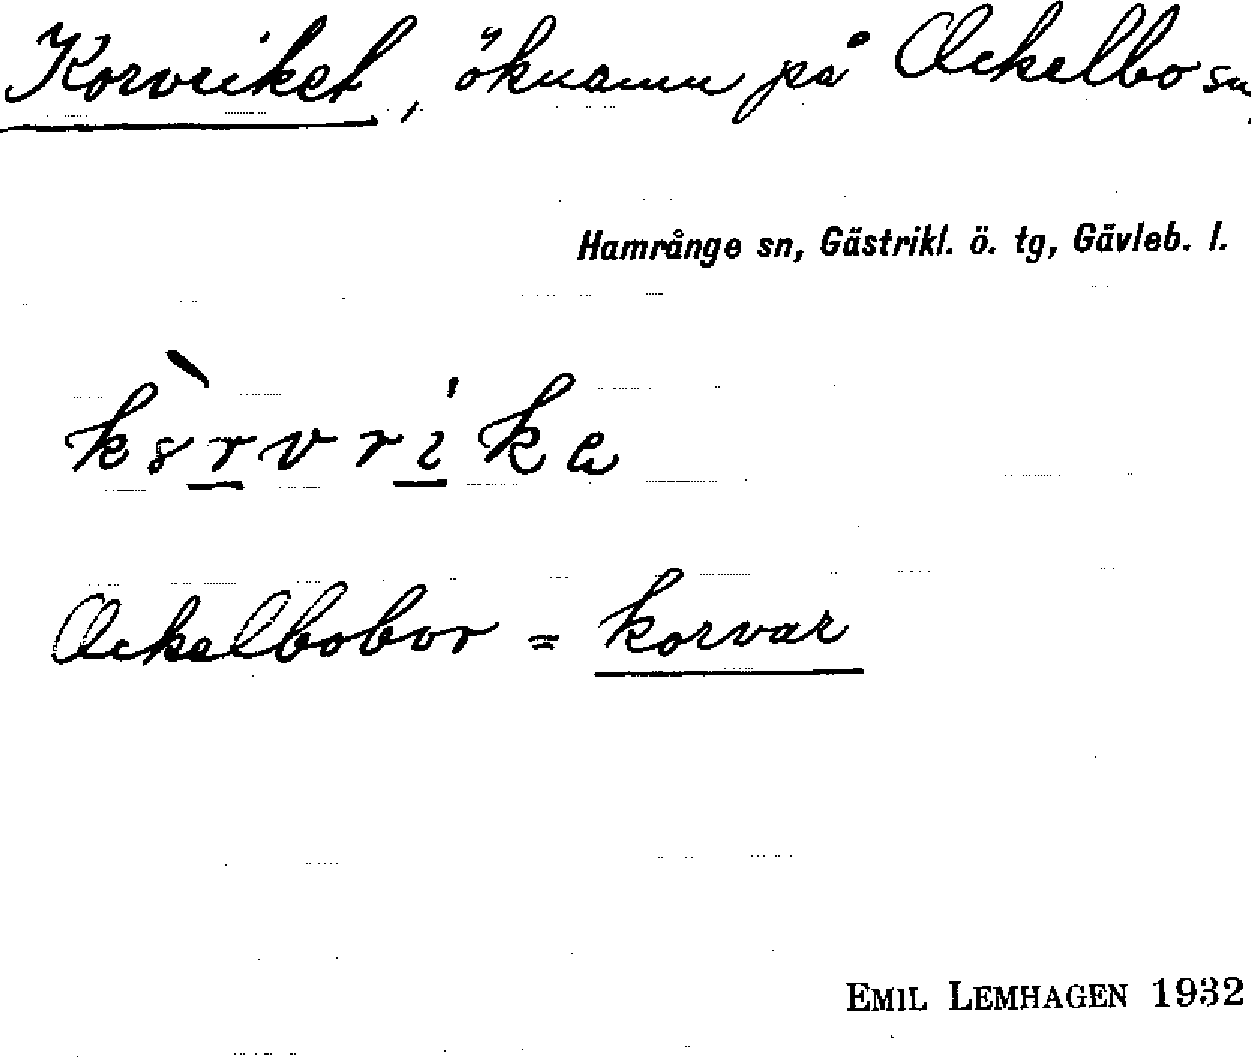 Korvriket, öknamn på Ockelbo sn.
Hamrånge sn, Gästrikl. ö. tg, Gävleb. l.
Ockelbobor = korvar
EMIL LEMHAGEN 1932